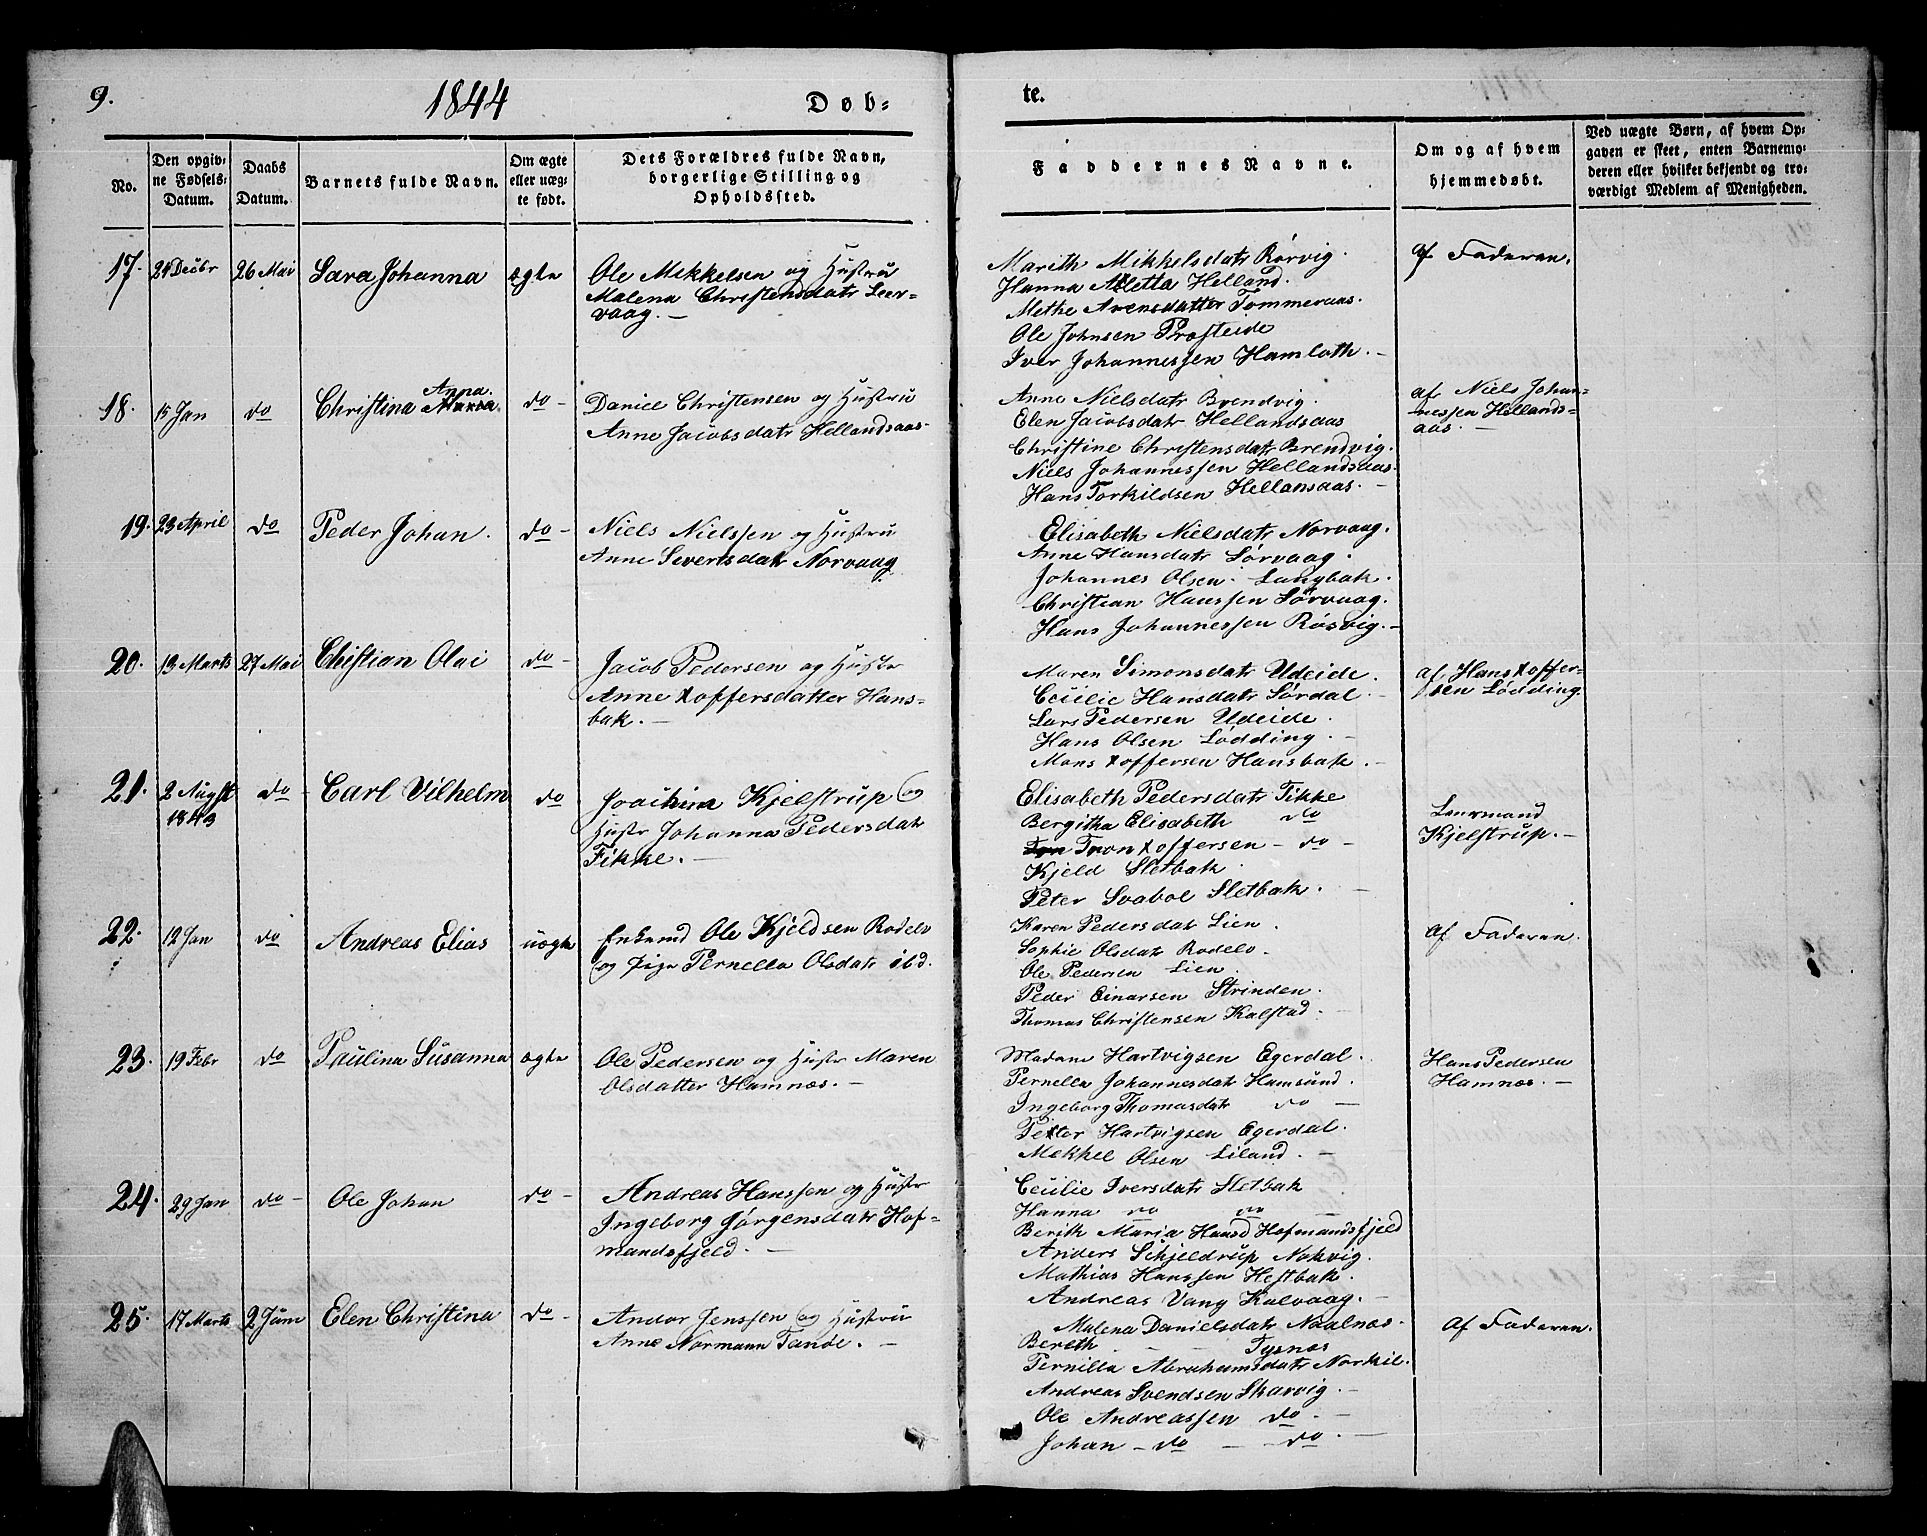 9.
1844
Døb=
te.
No.
Den opgiv=
ne Fødsels=
Datum.
Daabs
Datum.
Barnets fulde Navn.
Om ægte
eller uæg=
te født.
Dets Forældres fulde Navn,
borgerlige Stilling og
Opholdssted.
Faddernes Navne.
Om og af hvem
hjemmedøbt.
Ved uægte Børn, af hvem Op=
gaven er skeet, enten Barnemo=
deren eller hvilket bekjendt og tro=
værdigt Medlem af Menigheden.
17.
Decbr
26 Mai
Sara Johanna
ægte
Ole Mikkelsen og Hustru
Malena Christensdatr Leer-
vaag. —
Marith Mikkelsdatr Rørvig.
Hanna Aletta Helland.
Methe Arensdatter Tommeraas.
Ole Johnsen Præsteide
Iver Johannessen Hamloth. -
Af Faderen.
18.
15 Jan
do
Christina Anna
do -
Daniel Christensen og Hustru
Anne Jacobsdatr Hellandsaas-
Anne Nielsdatr Brendvig.
Elen Jacobsdatr Hellandsaas
Christine Christensdatr Brendvig.
Niels Johannessen Hellandsaas-
Hans Torkildsen Hellansaas. -
af Niels Johan-
nessen Hellands=
aas. —
19.
23 April
do
Peder Johan.
do -
Niels Nielssen og Hustru
Anne Sivertsdatr Norvaag
Elisabeth Nielsdatr Norvaag.
Anne Hansdatr Sørvaag.
Johannes Olsen. Langbak.
Christian Hanssen Sørvaag.
Hans Johannessen Røsvig. -
20.
13 Marts
27 Mai
Chistian Olai
do -
Jacob Pedersen og Hustr
Anne Xoffersdatter Hans-
bak. —
Maren Simonsdatr Udeide.
Cecilie Hansdatr Sørdal -
Lars Pedersen Udeide.
Hans Olsen Lødding. -
Mons Xoffersen Hansbak. -
af Hans Xoffer-
sen Lødding.
21.
2 Augst
1843
do -
Carl Vilhelm
do
Joachim Kjelstrup og
Hustr Johanna Pedersdatr
Fikke. —
Elisabeth Pedersdatr Fikke
Bergitha Elisabeth do
Tron Xoffersen - do -
Kjeld Sletbak.
Peter Svabol Sletbak. -
Lensmand
Kjelstrup. —
22.
12 Jan
do
Andreas Elias
uægte
Enkemd Ole Kjeldsen Rodelv
og Pige Pernella Olsdatr ibd.
Karen Pedersdatr Lien.
Sophie Olsdatr Rodelv.
Ole Pedersen Lien.
Peder Einarsen Strinden.
Thomas Christensen Kalstad. -
Af Faderen.
23.
19 Febr
do
Paulina Susanna
ægte
Ole Pedersen og Hustr Maren
Olsdatter Hamnæs. -
Madam Hartvigsen Egerdal.
Pernella Johannesdatr Hamsund.
Ingeborg Thomasdatr do -
Petter Hartvigsen Egerdal.
Mikkel Olsen Liland. -
Hans Pedersen
Hamnæs. -
24.
29 Jan
do -
Ole Johan
do -
Andreas Hanssen og Hustr
Ingeborg Jørgensdatr Hof=
mandsfjeld. —
Cecilie Iversdatr Sletbak
Hanna do do -
Berith Maria Hansd Hofmandsfjeld
Anders Schjeldrup Nakvig.
Mathias Hanssen Hestbak.
Andreas Vang Kalvaag. -
25.
17 Marts
2 Juni
Elen Christina
do -
Andor Jenssen og Hustru
Anne Normann Tanøe. -
Malena Danielsdatr Naalnæs.
Bereth - - Tysnæs
Pernilla Abrahamsdatr Norkil.
Andreas Svendsen Skarvig. -
Ole Andreassen do. -
Johan - do - do. -
Af Faderen.